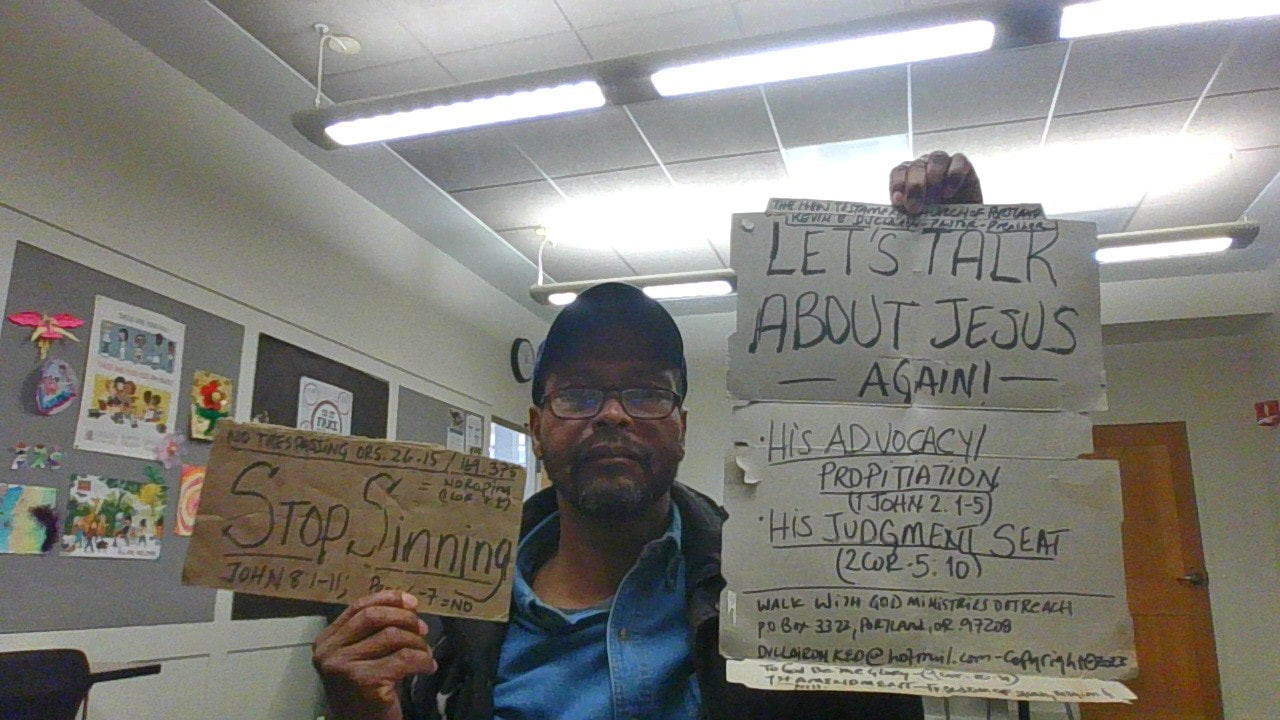 NO TRESPASSING ORS. 26.15 / 164.375
STOP SINNING
JOHN 8.1-11;
-7=NO
THE NEW TESTAMENT CHURCH OF PORTLAND
KEVIN E PASTOR-PREACHER
LET'S TALK
ABOUT JESUS
— AGAIN! —
· HIS ADVOCACY/
PROPITIATION
(1 JOHN 2.1-5)
· HIS JUDGMENT SEAT
(2COR. 5.10)
WALK WITH GOD MINISTRIES OUTREACH
PO BOX 3322, PORTLAND, OR. 97208
DULLAIRONKED@hotmail.com - Copyright©2023
TO GOD BE THE GLORY
1ST AMENDMENT - FREEDOM OF